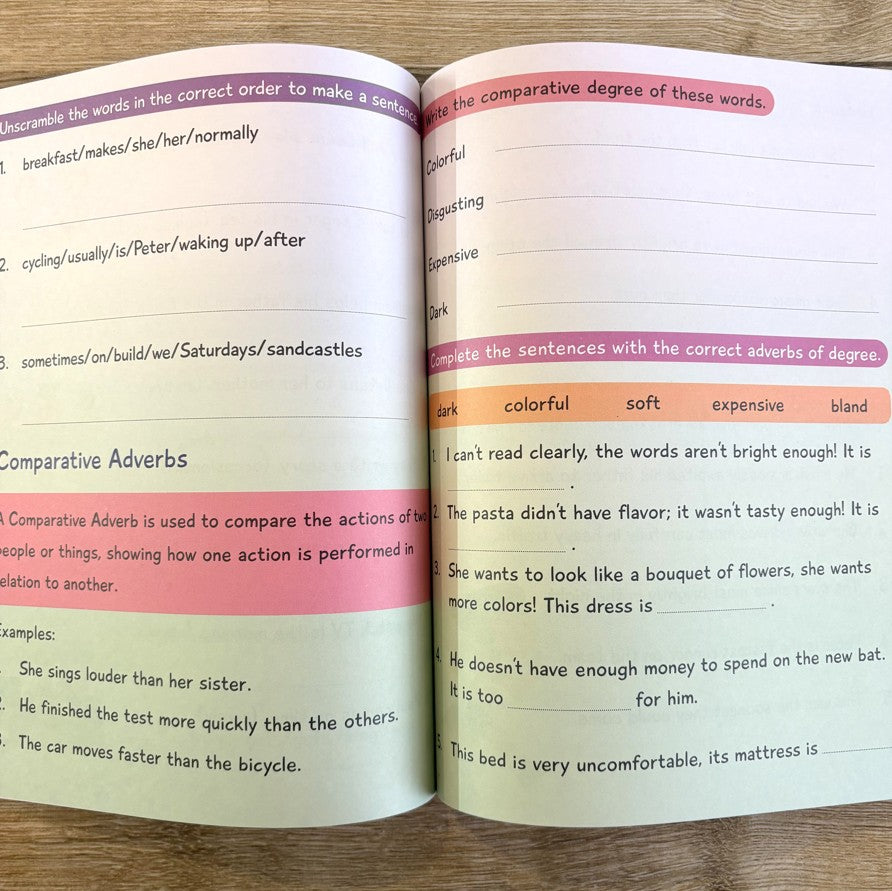 Unscramble the words in the correct order to make a sentence
1. breakfast/makes/she/her/normally
2. cycling/usually/is/Peter/waking up/after
3. sometimes/on/build/we/Saturdays/sandcastles
Comparative Adverbs
A Comparative Adverb is used to compare the actions of two
people or things, showing how one action is performed in
relation to another.
Examples:
She sings louder than her sister.
2. He finished the test more quickly than the others.
3. The car moves faster than the bicycle.
Write the comparative degree of these words.
Colorful
Disgusting
Expensive
Dark
Complete the sentences with the correct adverbs of degree.
dark colorful soft expensive bland
1. I can't read clearly, the words aren't bright enough! It is
.
2. The pasta didn't have flavor; it wasn't tasty enough! It is
.
3. She wants to look like a bouquet of flowers, she wants
more colors! This dress is .
4. He doesn't have enough money to spend on the new bat.
It is too for him.
5. This bed is very uncomfortable, its mattress is